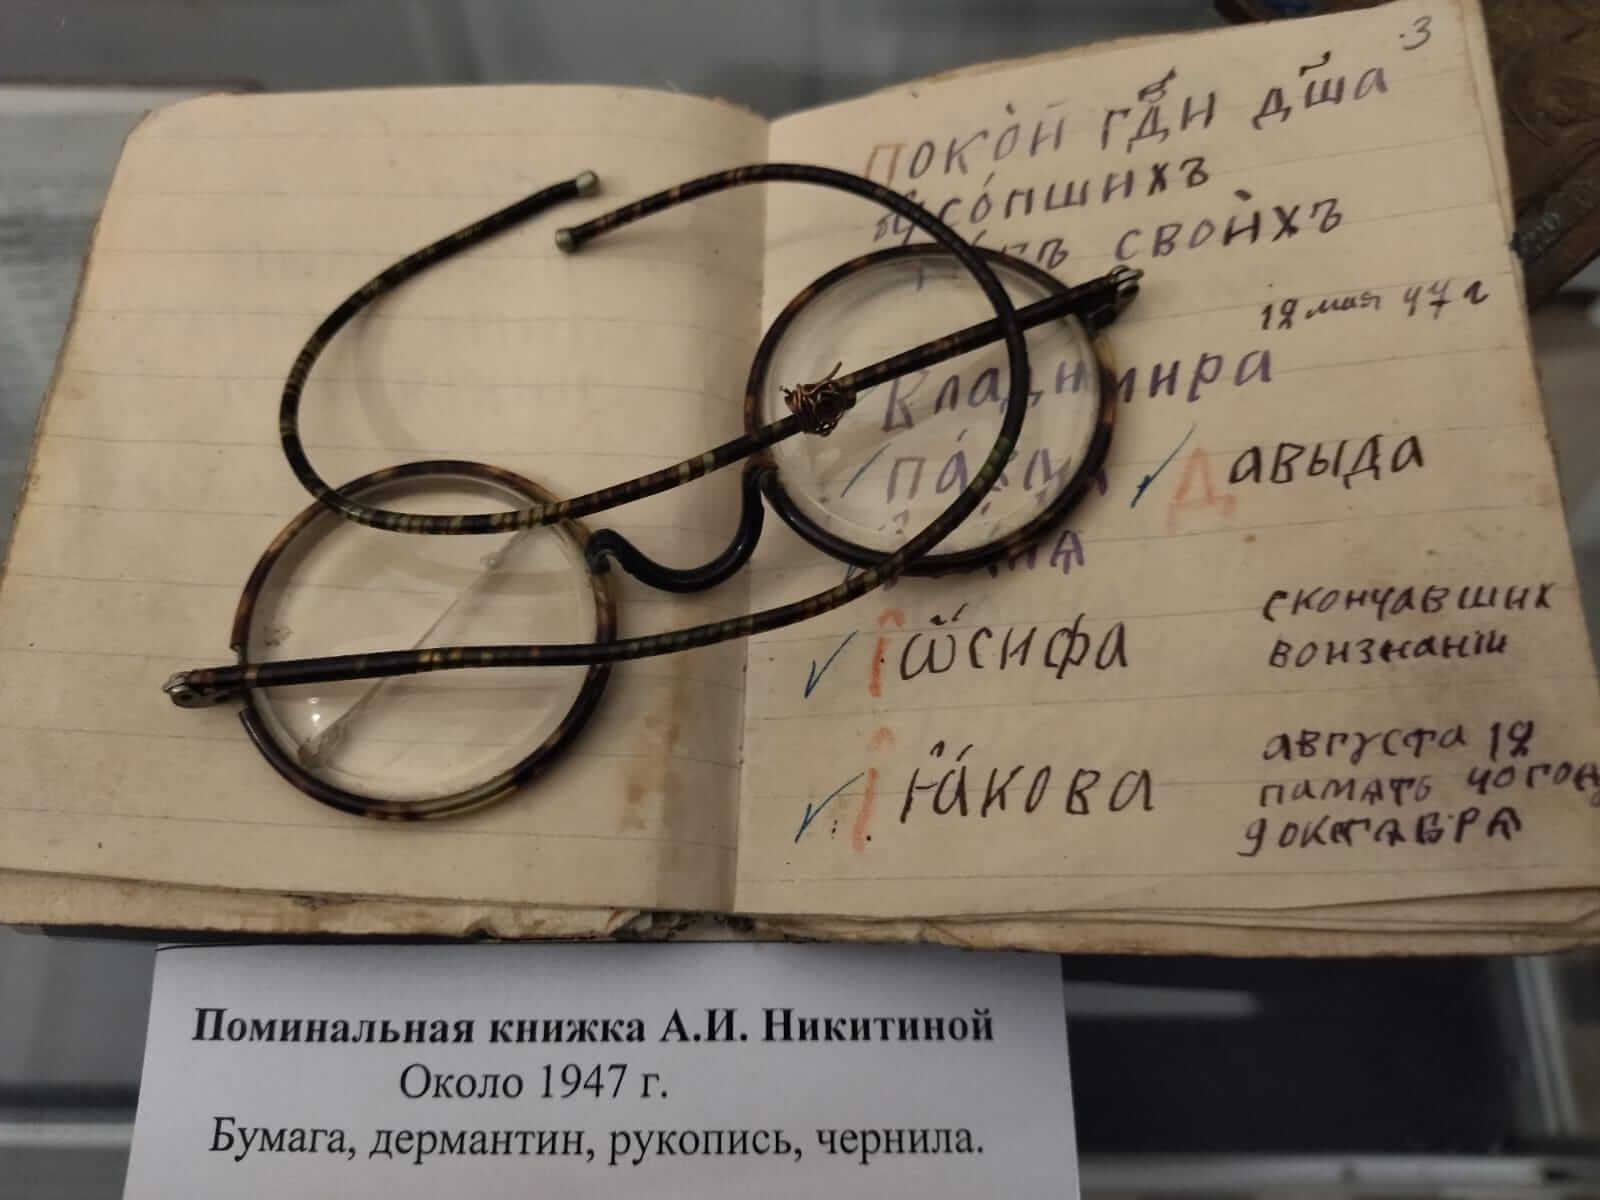 3
покой гд҃и дш҃а
усопшихъ
свойхъ
12 мая 47 г
Владимира
Павла
Давыда
Іѡсифа
скончавших
воизнании
Іꙗкова
августа 12
память
9 октября
Поминальная книжка А.И. Никитиной
Около 1947 г.
Бумага, дермантин, рукопись, чернила.